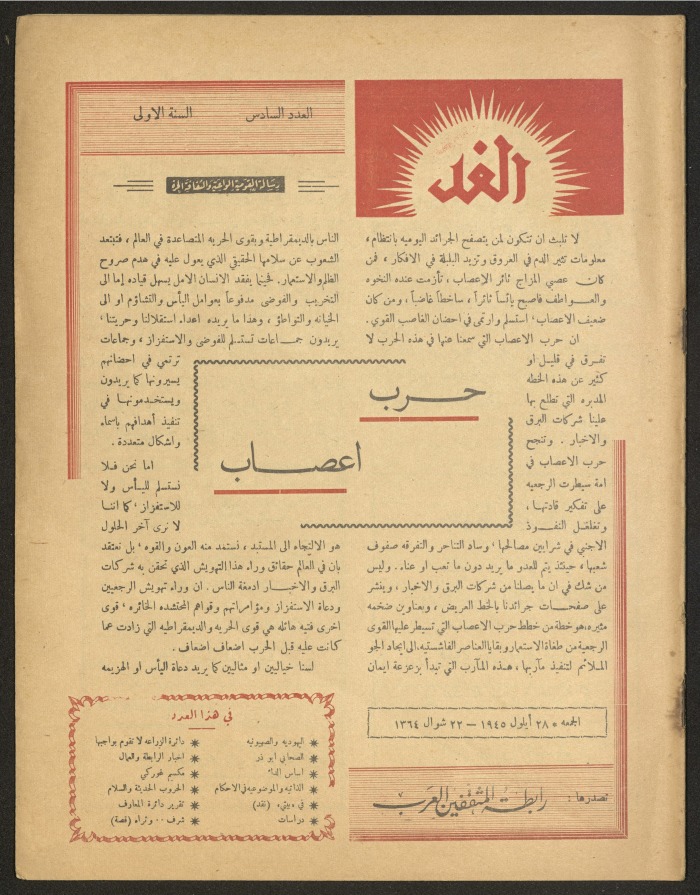 الغد
العدد السادس السنة الاولى
رسالة القومية الواعية والثقافة الحرة
حرب
اعصاب
لا تلبث ان تتكون لمن يتصفح الجرائد اليوميه بانتظام ،
معلومات تثير الدم في العروق وتزيد البلبلة في الافكار ، فمن
كان عصبي المزاج ثائر الاعصاب ، تأزمت عنده النخوه
والعواطف فاصبح يائساً ثائراً ، ساخطاً غاضباً ، ومن كان
ضعيف الاعصاب ، استسلم وارتمى في احضان الغاصب القوي .
ان حرب الاعصاب التي سمعنا عنها في هذه الحرب لا
تفرق في قليل او
كثير عن هذه الخطه
المدبره التي تطلع بها
علينا شركات البرق
والاخبار . وتنجح
حرب الاعصاب في
امة سيطرت الرجعيه
على تفكير قادتها ،
وتغلغل النفوذ
الاجنبي في شرايين مصالحها ، وساد التناحر والتفرقه صفوف
شعبها ، حينئذ يتم للعدو ما يريد دون ما تعب او عناء . وليس
من شك في ان ما يصلنا من شركات البرق والاخبار ، وينشر
على صفحات جرائدنا بالخط العريض ، وبعناوين ضخمه
مثيره ، هو خطة من خطط حرب الاعصاب التي تسيطر عليها القوى
الرجعية من طغاة الاستعمار وبقايا العناصر الفاشستيه . الى ايجاد الجو
الملائم لتنفيذ مآربها ، هذه المآرب التي تبدأ بزعزعة ايمان
الناس بالديمقراطية وبقوى الحريه المتصاعدة في العالم ، فتبتعد
الشعوب عن سلاحها الحقيقي الذي يعول عليه في هدم صروح
الظلم والاستعمار . فحينما يفقد الانسان الامل يسهل قياده إما الى
التخريب والفوضى مدفوعاً بعوامل اليأس والتشاؤم او الى
الخيانه والتواطؤ ، وهذا ما يريده اعداء استقلالنا وحريتنا ،
يريدون جماعات تستسلم للفوضى والاستفزاز ، وجماعات
ترتمي في احضانهم
يسيرونها كما يريدون
ويستخدمونها في
تنفيذ أهدافهم باسماء
واشكال متعددة .
اما نحن فلا
نستسلم لليأس ولا
للاستفزاز ، كما اننا
لا نرى آخر الحلول
هو الالتجاء الى المستبد ، نستمد منه العون والقوه ، بل نعتقد
بان في العالم حقائق وراء هذا التهويش الذي تحقن به شركات
البرق والاخبار ادمغة الناس . ان وراء تهويش الرجعيين
ودعاة الاستفزاز ومؤامراتهم وقواهم المحتشده الخائره ، قوى
اخرى فتيه هائله هي قوى الحريه والديمقراطيه التي زادت عما
كانت عليه قبل الحرب اضعاف اضعاف .
لسنا خياليين او مثاليين كما يريد دعاة اليأس او الهزيمه
الجمعه ٢٨ أيلول ١٩٤٥ — ٢٢ شوال ١٣٦٤
تصدرها : رابطة المثقفين العرب
في هذا العدد
اليهوديه والصهيونيه
الصحابي ابو ذر
اساس البناء
الذاتيه والموضوعيه في الاحكام
في بيتي (نقد)
دراسات
دائرة الزراعه لا تقوم بواجبها
اخبار الرابطة والعمال
مكسيم غوركي
الحروب الحديثة والسلام
تقرير دائرة المعارف
شرف .. وثراء (قصة)